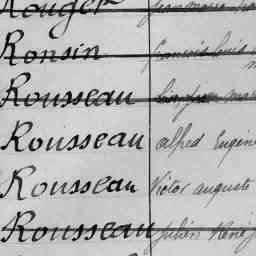 Rouger
Ronsin françois Louis
Rousseau
Rousseau alfred Eugène
Rousseau Victor auguste
Rousseau Julien René